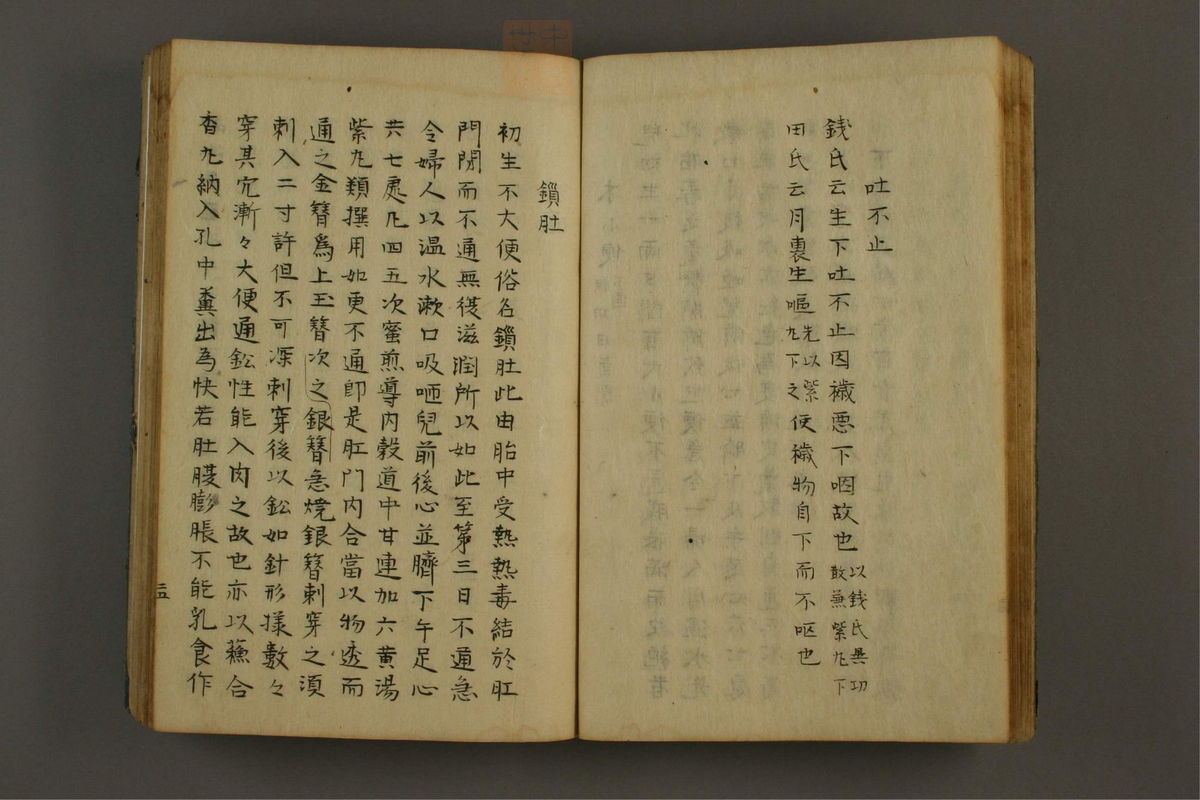 吐不止
錢氏云生下吐不止因穢悪下咽故也以錢氏異功散兼紫丸下
田氏云月裏生嘔先以紫丸下之便穢物自下而不呕也
鎖肚
初生不大便俗名鎖肚此由胎中受熱熱毒結於肛
門閉而不通無復滋潤所以如此至第三日不通急
令婦人以温水漱口吸咂兒前後心並臍下午足心
共七處凡四五次蜜煎導内穀道中甘連加六黄湯
紫丸類撰用如更不通即是肛門内合當以物透而
通之金簪爲上玉簪次之銀簪急焼銀簪刺穿之須
刺入二寸許但不可深刺穿後以鈆如針形様數々
穿其穴漸々大便通鈆性能入肉之故也亦以蘓合
香丸納入孔中糞出為快若肚腹膨脹不能乳食作